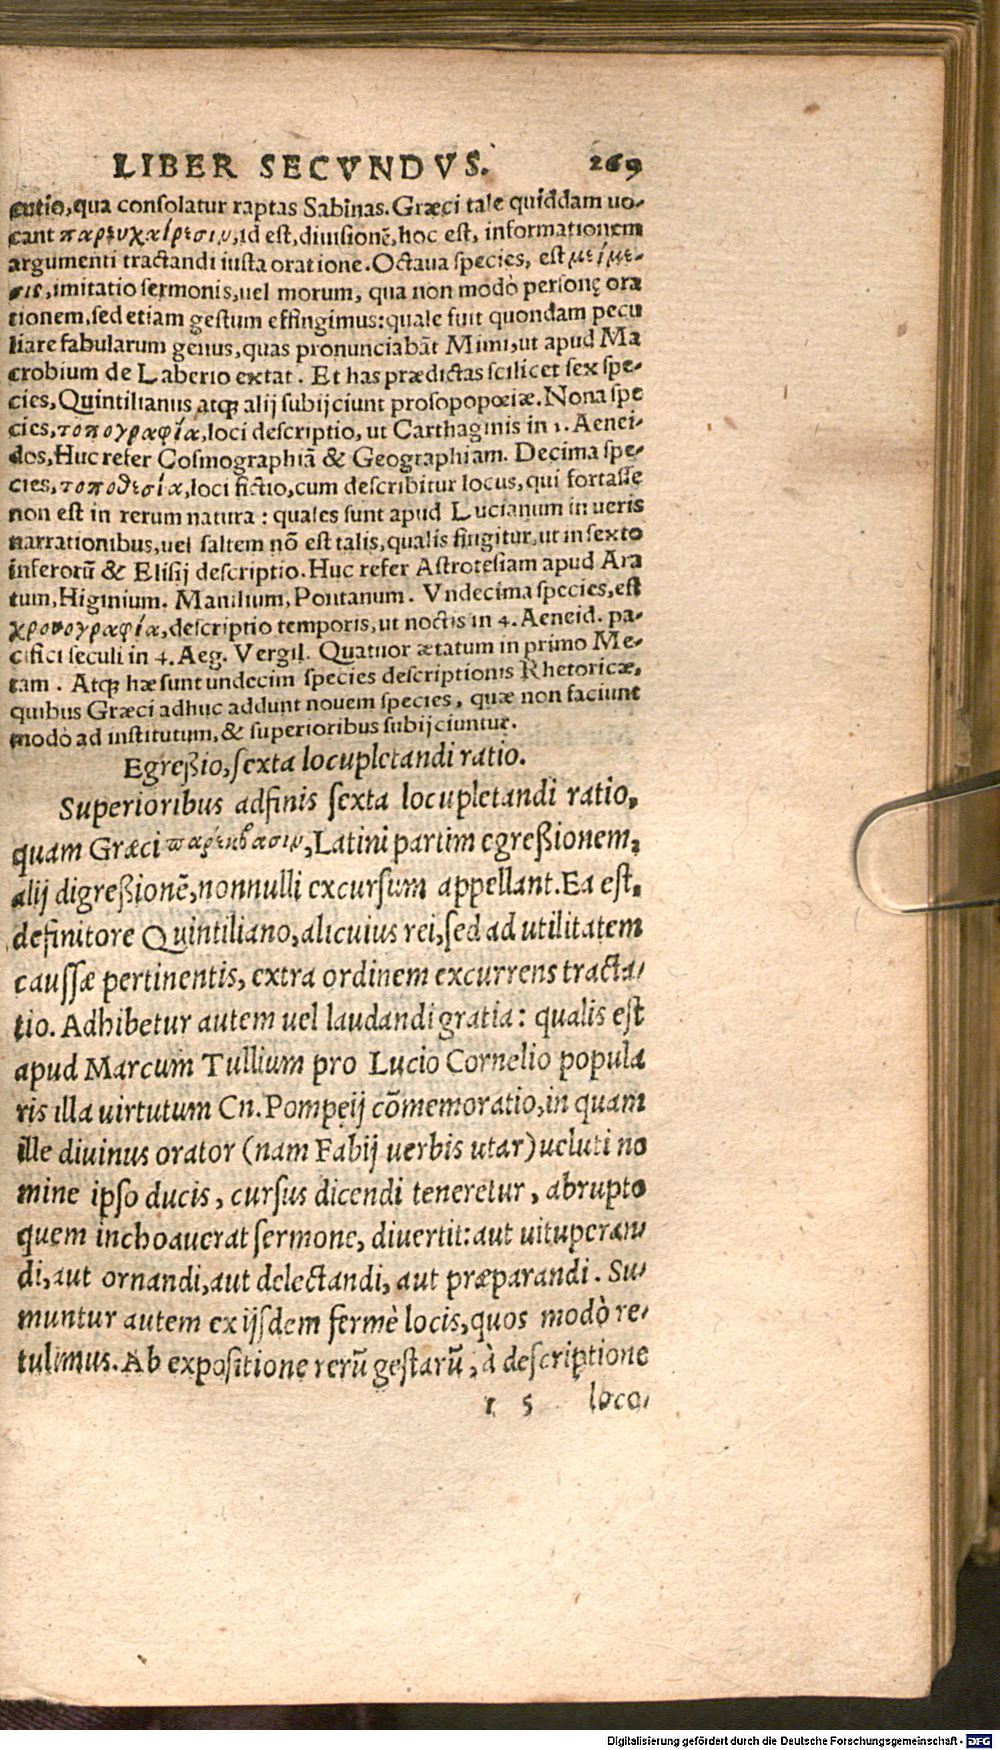 LIBER SECVNDVS. 269
cutio, qua consolatur raptas Sabinas. Græci tale quiddam uo-
cant παρευχαίρεσιν, id est, diuisionẽ, hoc est, informationem
argumenti tractandi iusta oratione. Octaua species, est μείμε-
σις, imitatio sermonis, uel morum, qua non modò personę ora
tionem, sed etiam gestum effingimus: quale fuit quondam pecu
liare fabularum genus, quas pronunciabãt Mimi, ut apud Ma
crobium de Laberio extat. Et has prædictas scilicet sex spe-
cies, Quintilianus atq; alij subijciunt prosopopœiæ. Nona spe
cies, τοπογραφία, loci descriptio, ut Carthaginis in 1. Aenei-
dos, Huc refer Cosmographiã & Geographiam. Decima spe-
cies, τοποθεσία, loci fictio, cum describitur locus, qui fortasse
non est in rerum natura: quales sunt apud Lucianum in ueris
narrationibus, uel saltem nõ est talis, qualis fingitur, ut in sexto
inferorũ & Elisij descriptio. Huc refer Astrotesiam apud Ara
tum, Higinium. Manilium, Pontanum. Vndecima species, est
χρονογραφία, descriptio temporis, ut noctis in 4. Aeneid. pa-
cifici seculi in 4. Aeg. Vergil. Quatuor ætatum in primo Me-
tam. Atq; hæ sunt undecim species descriptionis Rhetoricæ,
quibus Græci adhuc addunt nouem species, quæ non faciunt
modò ad institutum, & superioribus subijciuntur.
Egreßio, sexta locupletandi ratio.
Superioribus adfinis sexta locupletandi ratio,
quam Græci παρέκβασιν, Latini partim egreßionem,
alij digreßionẽ, nonnulli excursum appellant. Ea est,
definitore Quintiliano, alicuius rei, sed ad utilitatem
caussæ pertinentis, extra ordinem excurrens tracta-
tio. Adhibetur autem uel laudandi gratia: qualis est
apud Marcum Tullium pro Lucio Cornelio popula
ris illa uirtutum Cn. Pompęij cõmemoratio, in quam
ille diuinus orator (nam Fabij uerbis utar) ueluti no
mine ipso ducis, cursus dicendi teneretur, abrupto
quem inchoauerat sermone, diuertit: aut uituperan-
di, aut ornandi, aut delectandi, aut præparandi. Su-
muntur autem ex ijsdem fermè locis, quos modò re-
tulimus. Ab expositione rerũ gestarũ, à descriptione
r 5 loco-
Digitalisierung gefördert durch die Deutsche Forschungsgemeinschaft - DFG